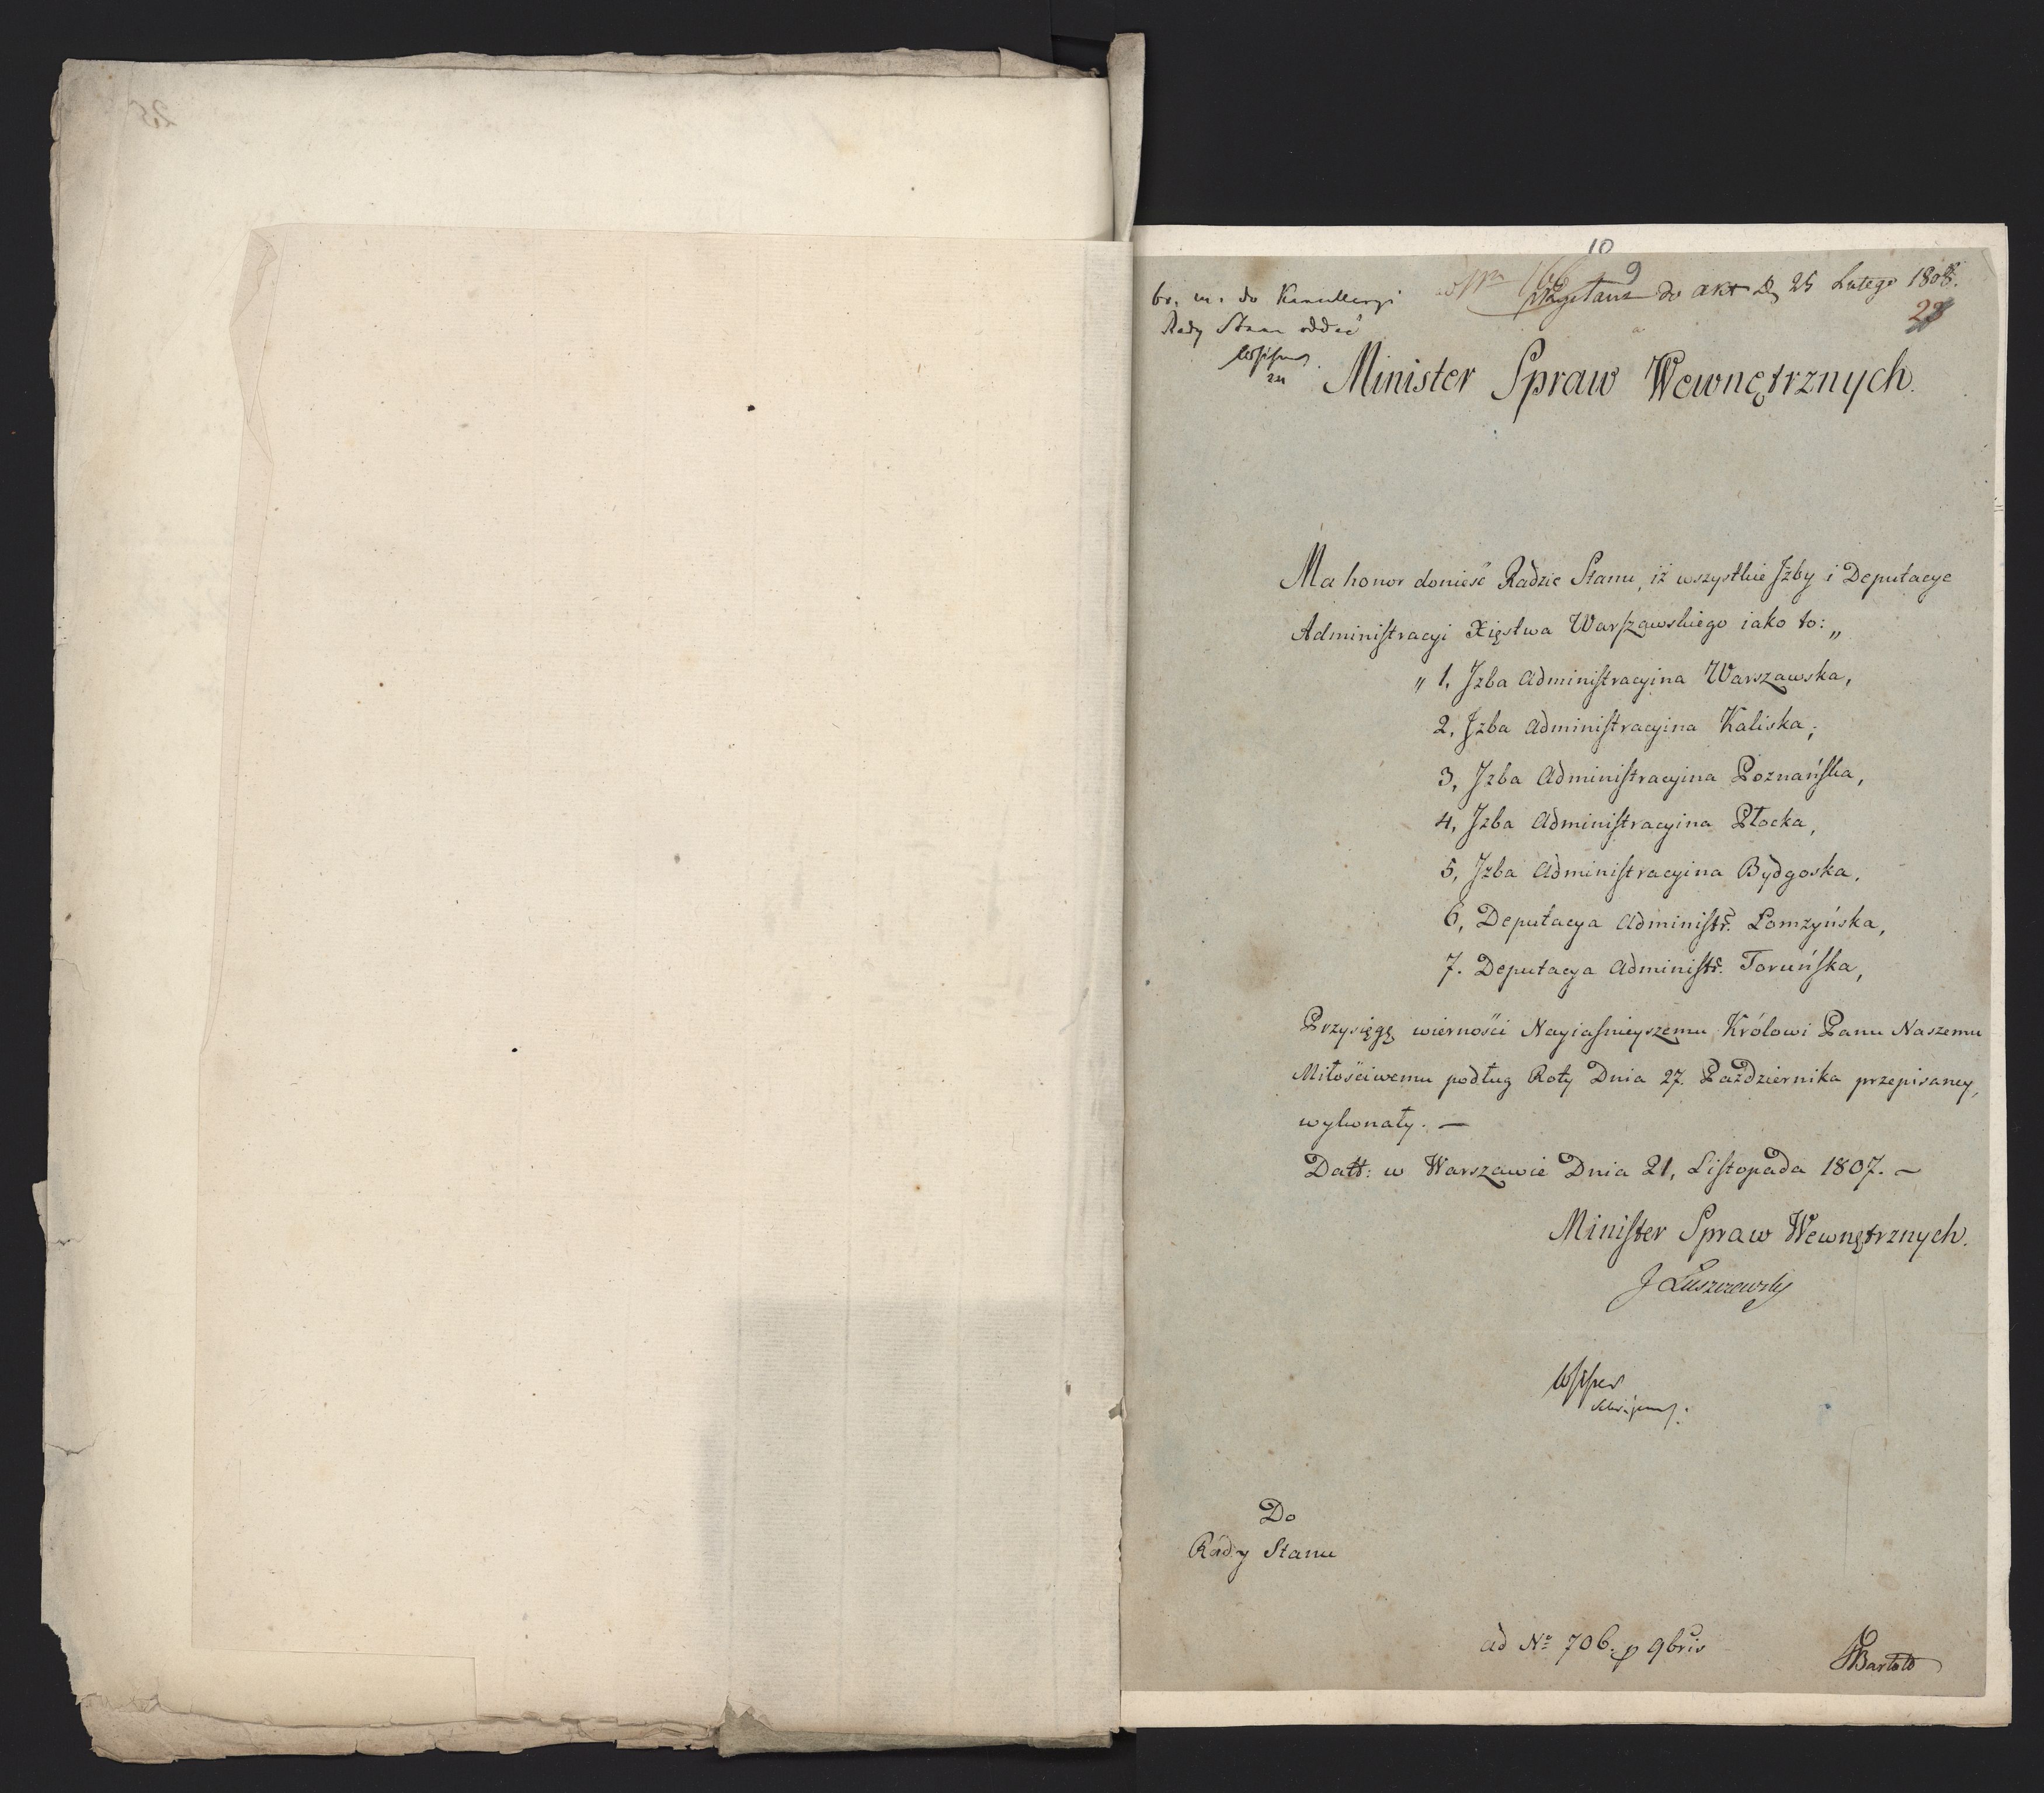 10
br. m. do Kancellaryi
Rady Stanu oddać
Nro 166 9
do akt d. 25 Lutego 1808.
28
Minister Spraw Wewnętrznych.
Ma honor donieść Radzie Stanu, iż wszystkie Jzby i Deputacye
Administracyi Xięstwa Warszawskiego iako to: „
„ 1, Jzba Administracyina Warszawska,
2, Jzba Administracyina Kaliska,
3, Jzba Administracyina Poznańska,
4, Jzba Administracyina Płocka,
5, Jzba Administracyina Bydgoska,
6, Deputacya Administr. Łomzyńska,
7. Deputacya Administr. Toruńska,
Przysięgę wierności Nayiaśnieyszemu Królowi Panu Naszemu
Miłościwemu podług Roty Dnia 27. Października przepisaney,
wykonały. —
Datt: w Warszawie Dnia 21, Listopada 1807. —
Minister Spraw Wewnętrznych.
J Łuszczewsky
Do
Rady Stanu
ad No 706. p 9bris
Bartold
25